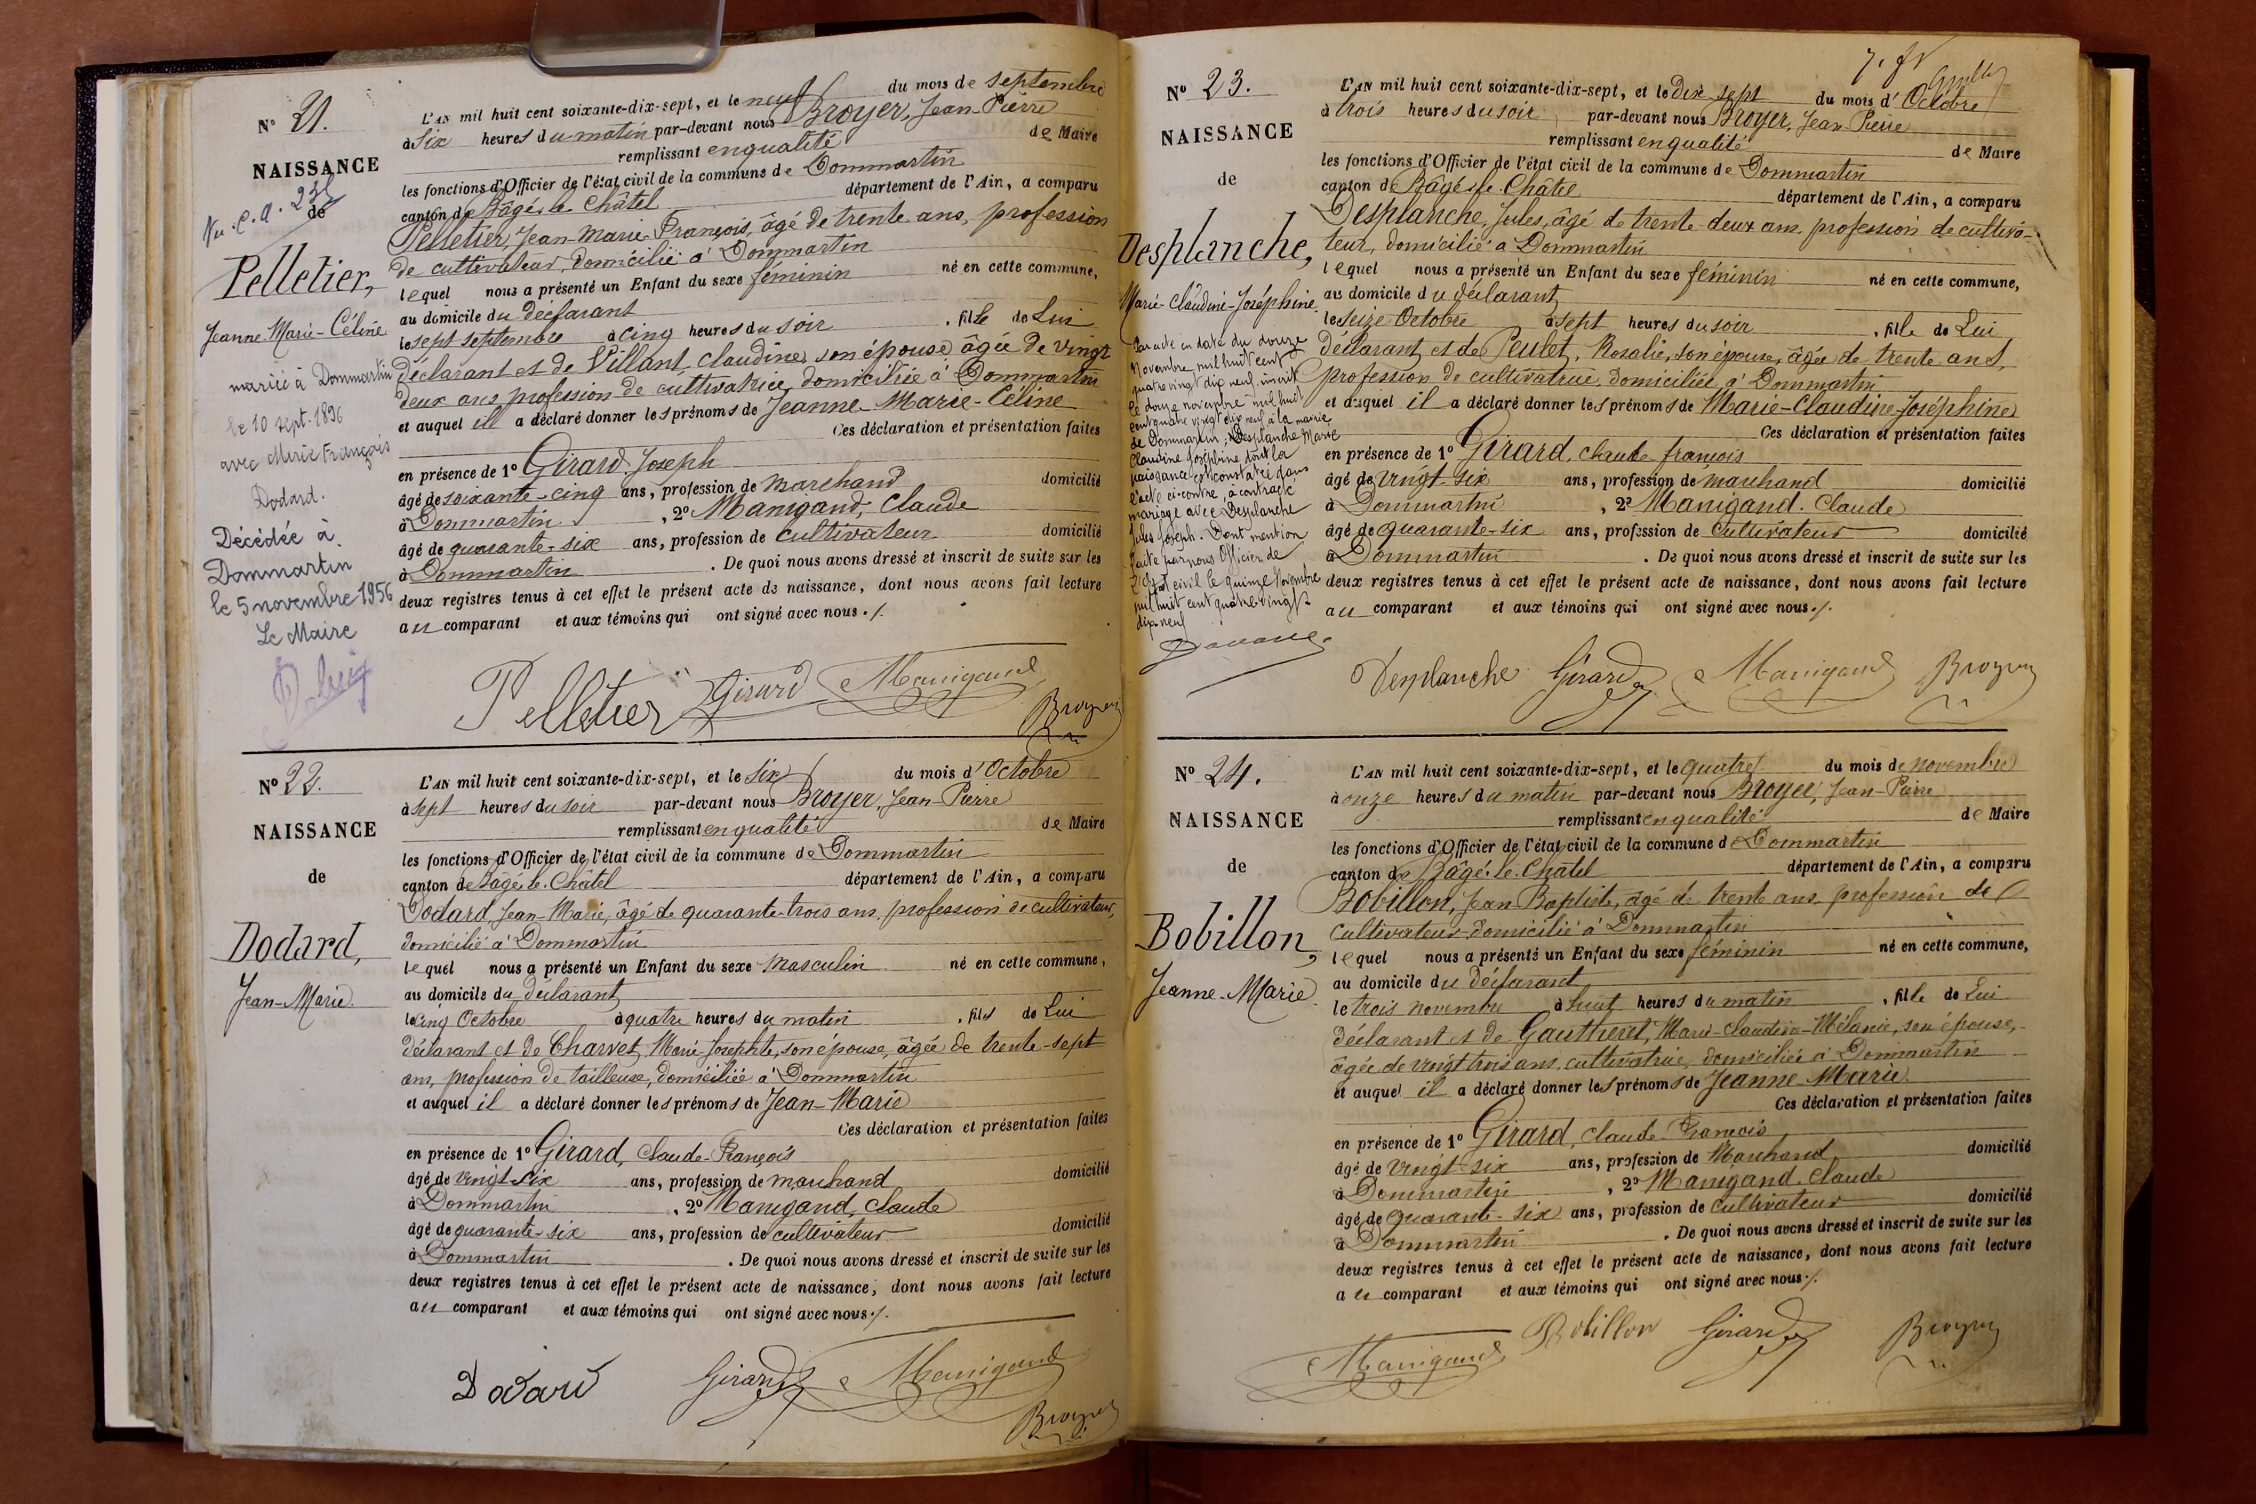 N° 21.
NAISSANCE
de
Pelletier,
Jeanne-Marie-Céline
mariée à Dommartin
le 10 sept. 1896
avec Marie François
Dodard.
Décédée à
Dommartin
le 5 novembre 1956
Le Maire
L'AN mil huit cent soixante-dix-sept, et le neuf du mois de septembre
à six heures du matin par-devant nous Broyer, Jean-Pierre
remplissant en qualité de Maire
les fonctions d'Officier de l'état civil de la commune de Dommartin
canton de Bâgé-le-Châtel département de l'Ain, a comparu
Pelletier, Jean-Marie-François, âgé de trente ans, profession
de cultivateur, domicilié à Dommartin
lequel nous a présenté un Enfant du sexe féminin né en cette commune,
au domicile du déclarant
le sept septembre à cinq heures du soir , fille de Lui
déclarant et de Villant, Claudine, son épouse, âgée de vingt
deux ans, profession de cultivatrice, domiciliée à Dommartin
et auquel il a déclaré donner les prénoms de Jeanne-Marie-Céline
Ces déclaration et présentation faites
en présence de 1° Girard, Joseph
âgé de soixante-cinq ans, profession de marchand domicilié
à Dommartin , 2° Manigand, Claude
âgé de quarante-six ans, profession de cultivateur domicilié
à Dommartin . De quoi nous avons dressé et inscrit de suite sur les
deux registres tenus à cet effet le présent acte de naissance, dont nous avons fait lecture
au comparant et aux témoins qui ont signé avec nous ./.
Pelletier Girard Manigand
Broyer
N° 22.
NAISSANCE
de
Dodard,
Jean-Marie
L'AN mil huit cent soixante-dix-sept, et le six du mois d'Octobre
à sept heures du soir par-devant nous Broyer, Jean-Pierre
remplissant en qualité de Maire
les fonctions d'Officier de l'état civil de la commune de Dommartin
canton de Bâgé-le-Châtel département de l'Ain, a comparu
Dodard, Jean-Marie, âgé de quarante-trois ans, profession de cultivateur,
domicilié à Dommartin
lequel nous a présenté un Enfant du sexe masculin né en cette commune,
au domicile du déclarant
le cinq Octobre à quatre heures du matin , fils de Lui
déclarant et de Charvet, Marie-Josephte, son épouse, âgée de trente-sept
ans, profession de tailleuse, domiciliée à Dommartin
et auquel il a déclaré donner les prénoms de Jean-Marie
Ces déclaration et présentation faites
en présence de 1° Girard, Claude-François
âgé de vingt-six ans, profession de marchand domicilié
à Dommartin , 2° Manigand, Claude
âgé de quarante-six ans, profession de cultivateur domicilié
à Dommartin . De quoi nous avons dressé et inscrit de suite sur les
deux registres tenus à cet effet le présent acte de naissance, dont nous avons fait lecture
au comparant et aux témoins qui ont signé avec nous ./.
Dodard Girard Manigand
Broyer
N° 23.
NAISSANCE
de
Desplanche,
Marie-Claudine-Joséphine
Par acte en date du douze
Novembre mil huit cent
quatre vingt dix neuf, inscrit
le douze novembre mil huit
cent quatre vingt dix neuf à la mairie
de Dommartin, Desplanche Marie
Claudine Joséphine dont la
naissance est constatée dans
l'acte ci-contre, a contracté
mariage avec Desplanche
Jules Joseph. Dont mention
faite par nous Officier de
l'Etat civil le quinze Novembre
mil huit cent quatre vingt-
dix neuf
L'AN mil huit cent soixante-dix-sept, et le dix sept du mois d'Octobre
à trois heures du soir par-devant nous Broyer, Jean Pierre
remplissant en qualité de Maire
les fonctions d'Officier de l'état civil de la commune de Dommartin
canton de Bâgé-le-Châtel département de l'Ain, a comparu
Desplanche, Jules, âgé de trente-deux ans, profession de cultiva-
teur, domicilié à Dommartin
lequel nous a présenté un Enfant du sexe féminin né en cette commune,
au domicile du déclarant
le seize Octobre à sept heures du soir , fille de Lui
déclarant et de Peulet, Rosalie, son épouse, âgée de trente ans,
profession de cultivatrice, domiciliée à Dommartin
et auquel il a déclaré donner les prénoms de Marie-Claudine-Joséphine
Ces déclaration et présentation faites
en présence de 1° Girard, Claude françois
âgé de vingt-six ans, profession de marchand domicilié
à Dommartin , 2° Manigand, Claude
âgé de quarante-six ans, profession de cultivateur domicilié
à Dommartin . De quoi nous avons dressé et inscrit de suite sur les
deux registres tenus à cet effet le présent acte de naissance, dont nous avons fait lecture
au comparant et aux témoins qui ont signé avec nous ./.
Desplanche Girard Manigand Broyer
N° 24.
NAISSANCE
de
Bobillon,
Jeanne-Marie
L'AN mil huit cent soixante-dix-sept, et le quatre du mois de novembre
à onze heures du matin par-devant nous Broyer, Jean-Pierre
remplissant en qualité de Maire
les fonctions d'Officier de l'état civil de la commune de Dommartin
canton de Bâgé-le-Châtel département de l'Ain, a comparu
Bobillon, Jean Baptiste, âgé de trente ans, profession de
cultivateur domicilié à Dommartin
lequel nous a présenté un Enfant du sexe féminin né en cette commune,
au domicile du déclarant
le trois novembre à huit heures du matin , fille de Lui
déclarant et de Gautheret, Marie-Claudine-Mélanie, son épouse,
âgée de vingt trois ans, cultivatrice, domiciliée à Dommartin
et auquel il a déclaré donner les prénoms de Jeanne-Marie
Ces déclaration et présentation faites
en présence de 1° Girard, Claude-François
âgé de vingt-six ans, profession de Marchand domicilié
à Dommartin , 2° Manigand, Claude
âgé de quarante-six ans, profession de cultivateur domicilié
à Dommartin . De quoi nous avons dressé et inscrit de suite sur les
deux registres tenus à cet effet le présent acte de naissance, dont nous avons fait lecture
au comparant et aux témoins qui ont signé avec nous ./.
Manigand Bobillon Girard Broyer